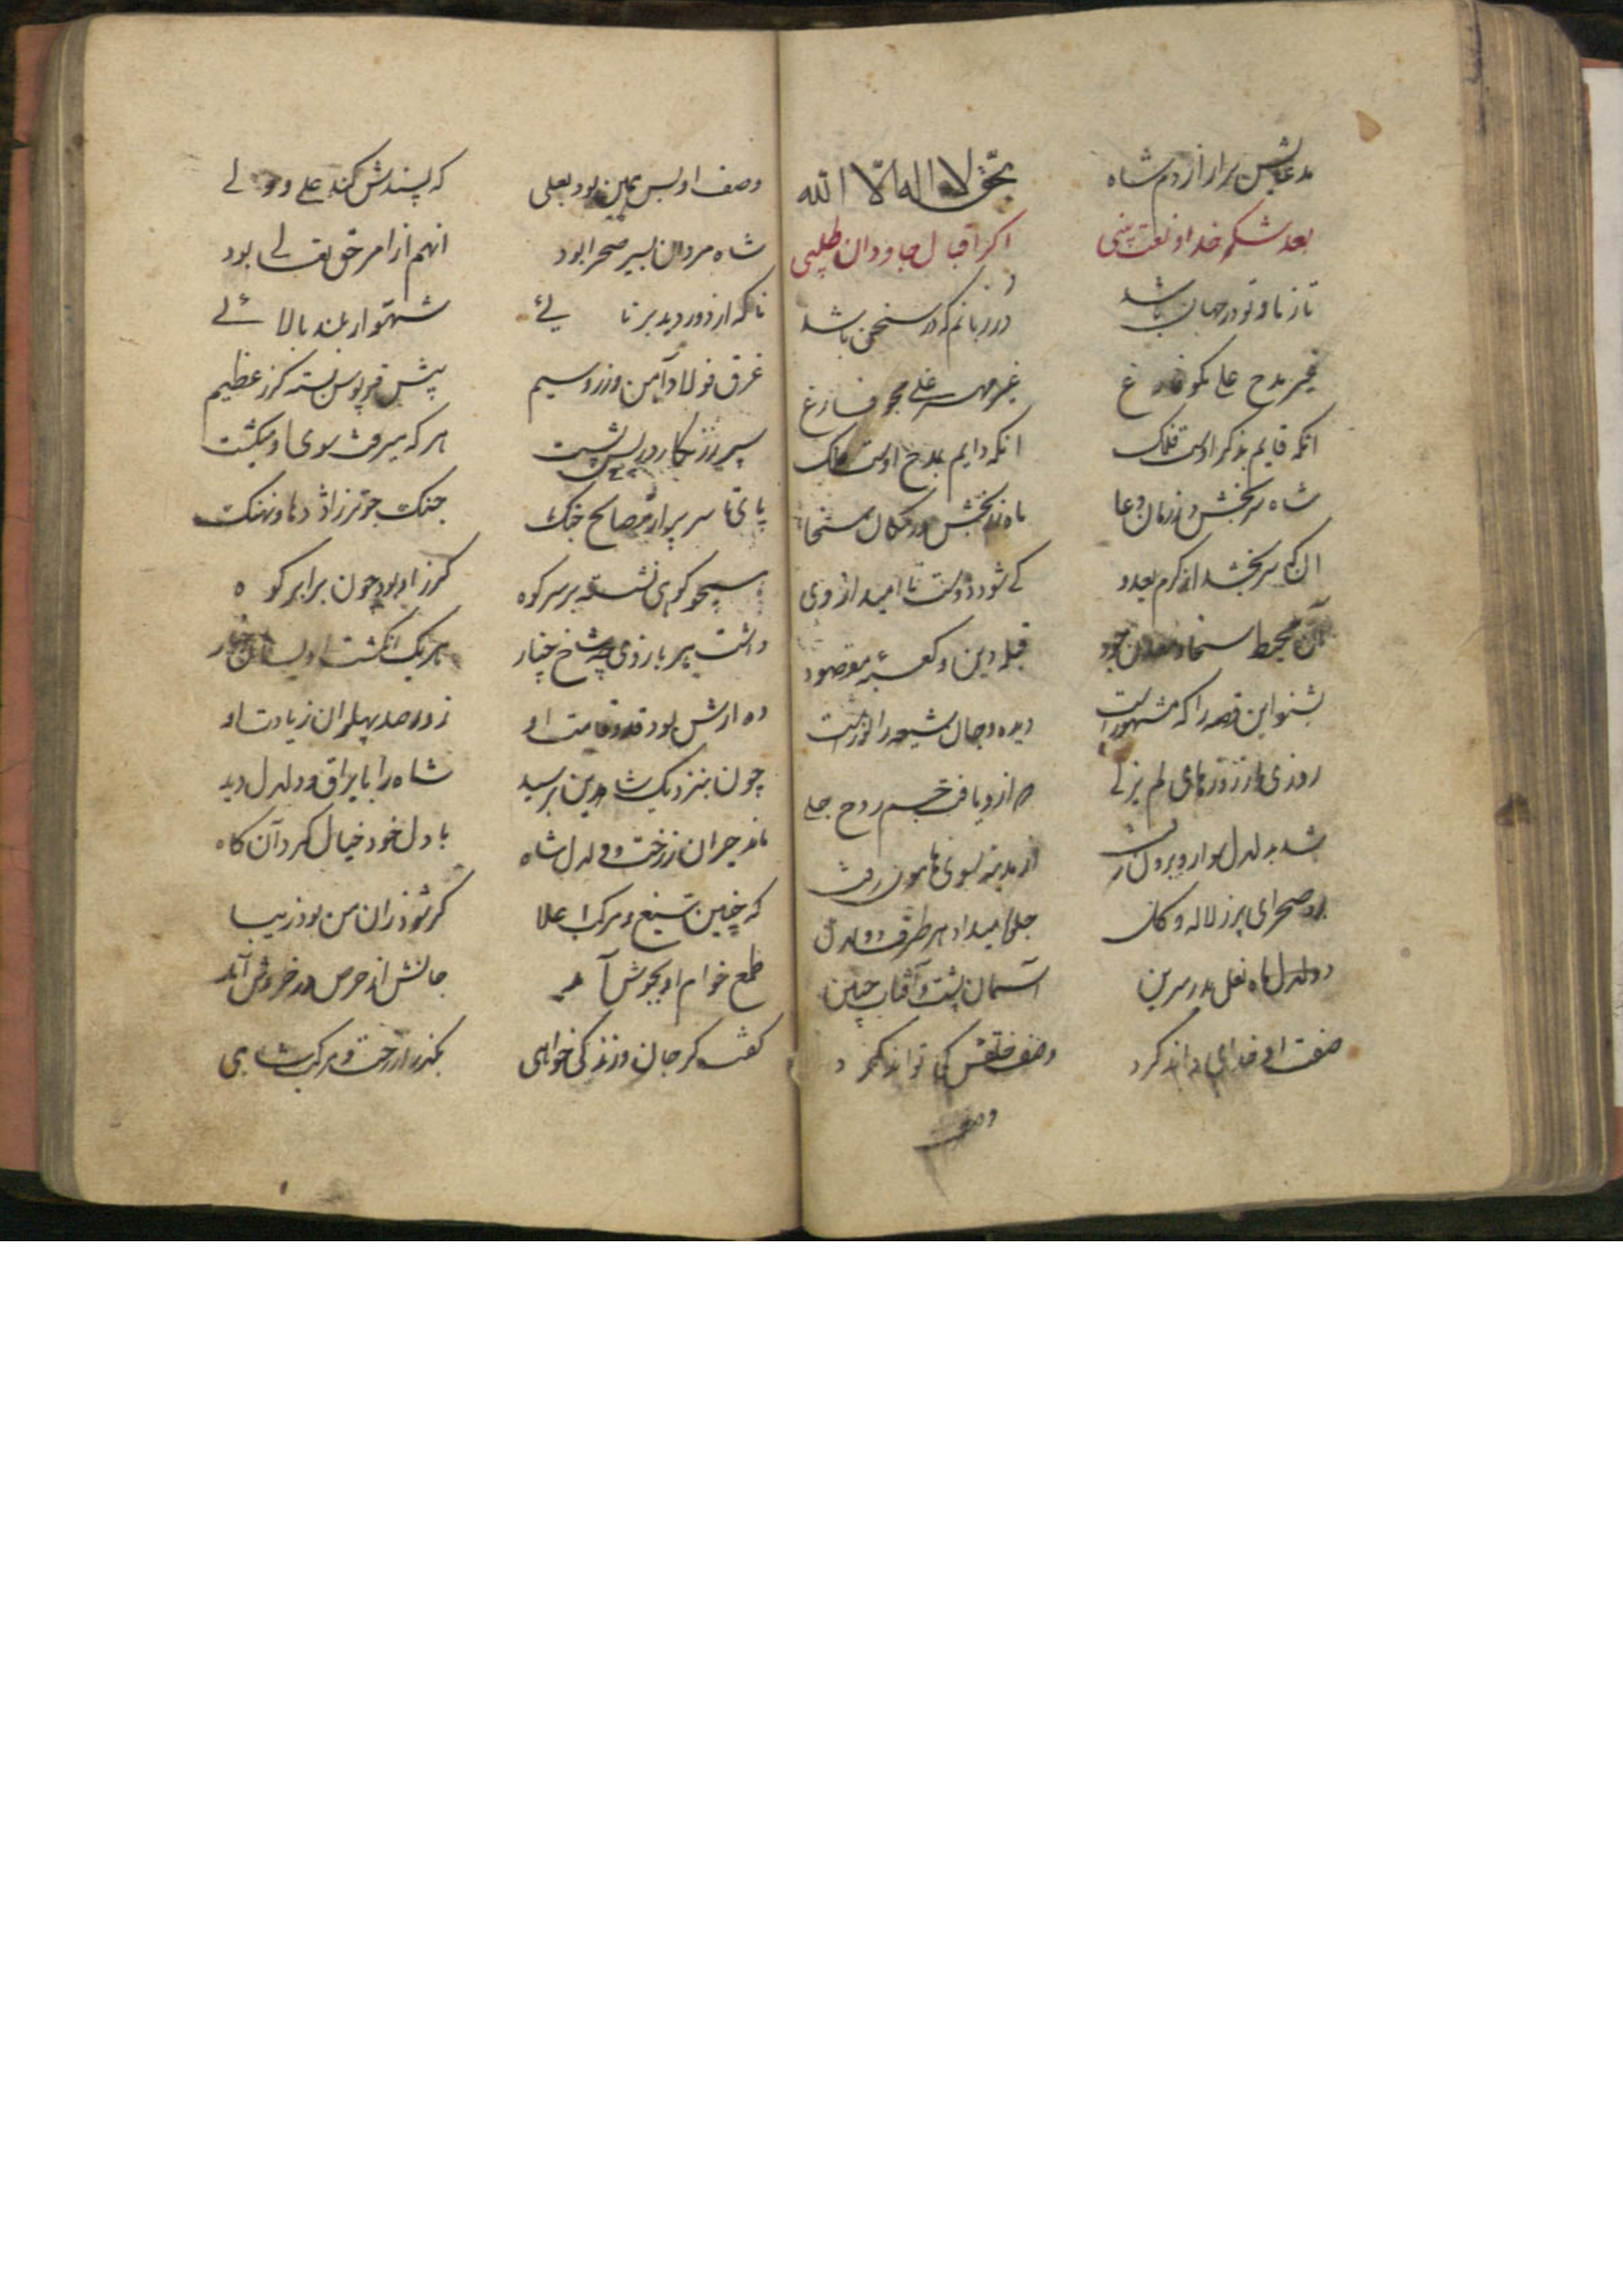 مدعایش برار از دم شاه بحق لا اله الا الله
بعد شکر خدا و نعت نبی اگر اقبال جاودان طلبی
تا ز ما و تو در جهان باشد در زبانم که در سخن باشد
غیر مدح علی مگو فارغ غیر مهر علی مجو فارغ
انکه قایم بذکر اوست فلک انکه دایم بمدح اوست ملک
شاه سر بخش در زمان دعا ماه زر بخش در مکان سخا
ان که سر بخشد از کرم بعدو کی شود دوست نا امید از وی
آن محیط سخا و معدن جود قبله دین و کعبه مقصود
بشنو این قصه را که مشهور است دیده و جان شیعه را نور است
روزی از روزهای لم یزلی از و یافت جسم روح جلی
شد بدلدل سوار و بیرون رفت از مدینه بسوی هامون رفت
بود صحرای پر ز لاله و گل جلوه میداد هر طرف دولدل
دولدل ماه نعل بدر سرین آسمان پشت و آفتاب جبین
صفت او خدای داند کرد وصف خلقش کی تواند کرد
وصف
وصف او بس همین بود یعلی که پسندش کند علی و ولی
شاه مردان بسیر صحرا بود انهم از امر حق تعالی بود
ناکه از دور دید برنایی شهسوار بلند بالائی
غرق فولاد و آهن و زر و سیم پیش قرپوس بسته کرز عظیم
سپر زرنکار در پس پشت هر که میرفت سوی او میکشت
پای تا سر پر از مصالح جنک جنک جو تر ز اژدها و نهنک
همچو کوهی نشسته بر سر کوه کرز او بود چون برابر کوه
داشت پیر بازوی چه شاخ چنار هر یک انکشت او بسان خیار
ده ارش بود قد و قامت او زور صد پهلوان زیادت او
چون بنزدیک شاه دین برسید شاه را با یراق و دلدل دید
ماند حیران ز رخت و دلدل شاه با دل خود خیال کرد آن کاه
که چنین تیغ و مرکب اعلا کر شود زان من بود زیبا
طمع خوام او بجوش آمد جانش از حرص در خروش آمد
کفت کر جان و زندکی خواهی بکذر از رخت و مرکب شاهی